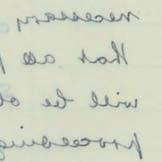 necessary
that all
will be
proceeding